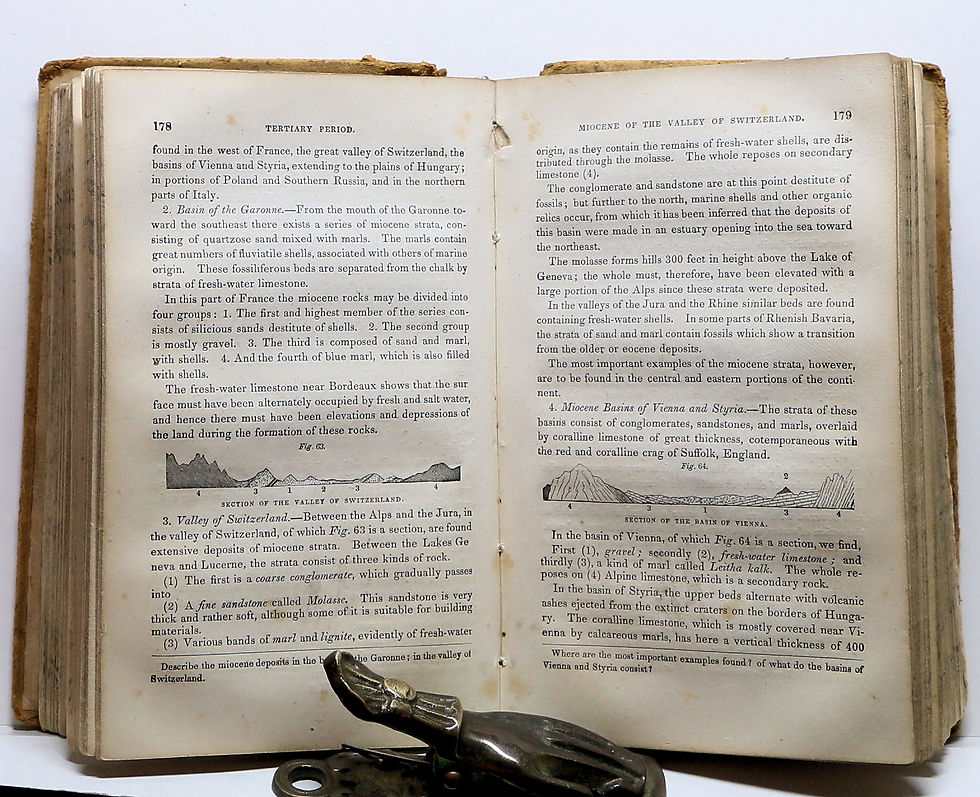 178
TERTIARY PERIOD.
found in the west of France, the great valley of Switzerland, the
basins of Vienna and Styria, extending to the plains of Hungary;
in portions of Poland and Southern Russia, and in the northern
parts of Italy.
2. Basin of the Garonne.—From the mouth of the Garonne to-
ward the southeast there exists a series of miocene strata, con-
sisting of quartzose sand mixed with marls. The marls contain
great numbers of fluviatile shells, associated with others of marine
origin. These fossiliferous beds are separated from the chalk by
strata of fresh-water limestone.
In this part of France the miocene rocks may be divided into
four groups: 1. The first and highest member of the series con-
sists of silicious sands destitute of shells. 2. The second group
is mostly gravel. 3. The third is composed of sand and marl,
with shells. 4. And the fourth of blue marl, which is also filled
with shells.
The fresh-water limestone near Bordeaux shows that the sur
face must have been alternately occupied by fresh and salt water,
and hence there must have been elevations and depressions of
the land during the formation of these rocks.
Fig. 63.
4 3 1 2 3 4
SECTION OF THE VALLEY OF SWITZERLAND.
3. Valley of Switzerland.—Between the Alps and the Jura, in
the valley of Switzerland, of which Fig. 63 is a section, are found
extensive deposits of miocene strata. Between the Lakes Ge
neva and Lucerne, the strata consist of three kinds of rock.
(1) The first is a coarse conglomerate, which gradually passes
into
(2) A fine sandstone called Molasse. This sandstone is very
thick and rather soft, although some of it is suitable for building
materials.
(3) Various bands of marl and lignite, evidently of fresh-water
Describe the miocene deposits in the the Garonne; in the valley of
Switzerland.
MIOCENE OF THE VALLEY OF SWITZERLAND.
179
origin, as they contain the remains of fresh-water shells, are dis-
tributed through the molasse. The whole reposes on secondary
limestone (4).
The conglomerate and sandstone are at this point destitute of
fossils; but further to the north, marine shells and other organic
relics occur, from which it has been inferred that the deposits of
this basin were made in an estuary opening into the sea toward
the northeast.
The molasse forms hills 300 feet in height above the Lake of
Geneva; the whole must, therefore, have been elevated with a
large portion of the Alps since these strata were deposited.
In the valleys of the Jura and the Rhine similar beds are found
containing fresh-water shells. In some parts of Rhenish Bavaria,
the strata of sand and marl contain fossils which show a transition
from the older or eocene deposits.
The most important examples of the miocene strata, however,
are to be found in the central and eastern portions of the conti-
nent.
4. Miocene Basins of Vienna and Styria.—The strata of these
basins consist of conglomerates, sandstones, and marls, overlaid
by coralline limestone of great thickness, cotemporaneous with
the red and coralline crag of Suffolk, England.
Fig. 64.
2
4 3 1 3 4
SECTION OF THE BASIN OF VIENNA.
In the basin of Vienna, of which Fig. 64 is a section, we find,
First (1), gravel; secondly (2), fresh-water limestone; and
thirdly (3), a kind of marl called Leitha kalk. The whole re-
poses on (4) Alpine limestone, which is a secondary rock.
In the basin of Styria, the upper beds alternate with volcanic
ashes ejected from the extinct craters on the borders of Hunga-
ry. The coralline limestone, which is mostly covered near Vi-
enna by calcareous marls, has here a vertical thickness of 400
Where are the most important examples found? of what do the basins of
Vienna and Styria consist?